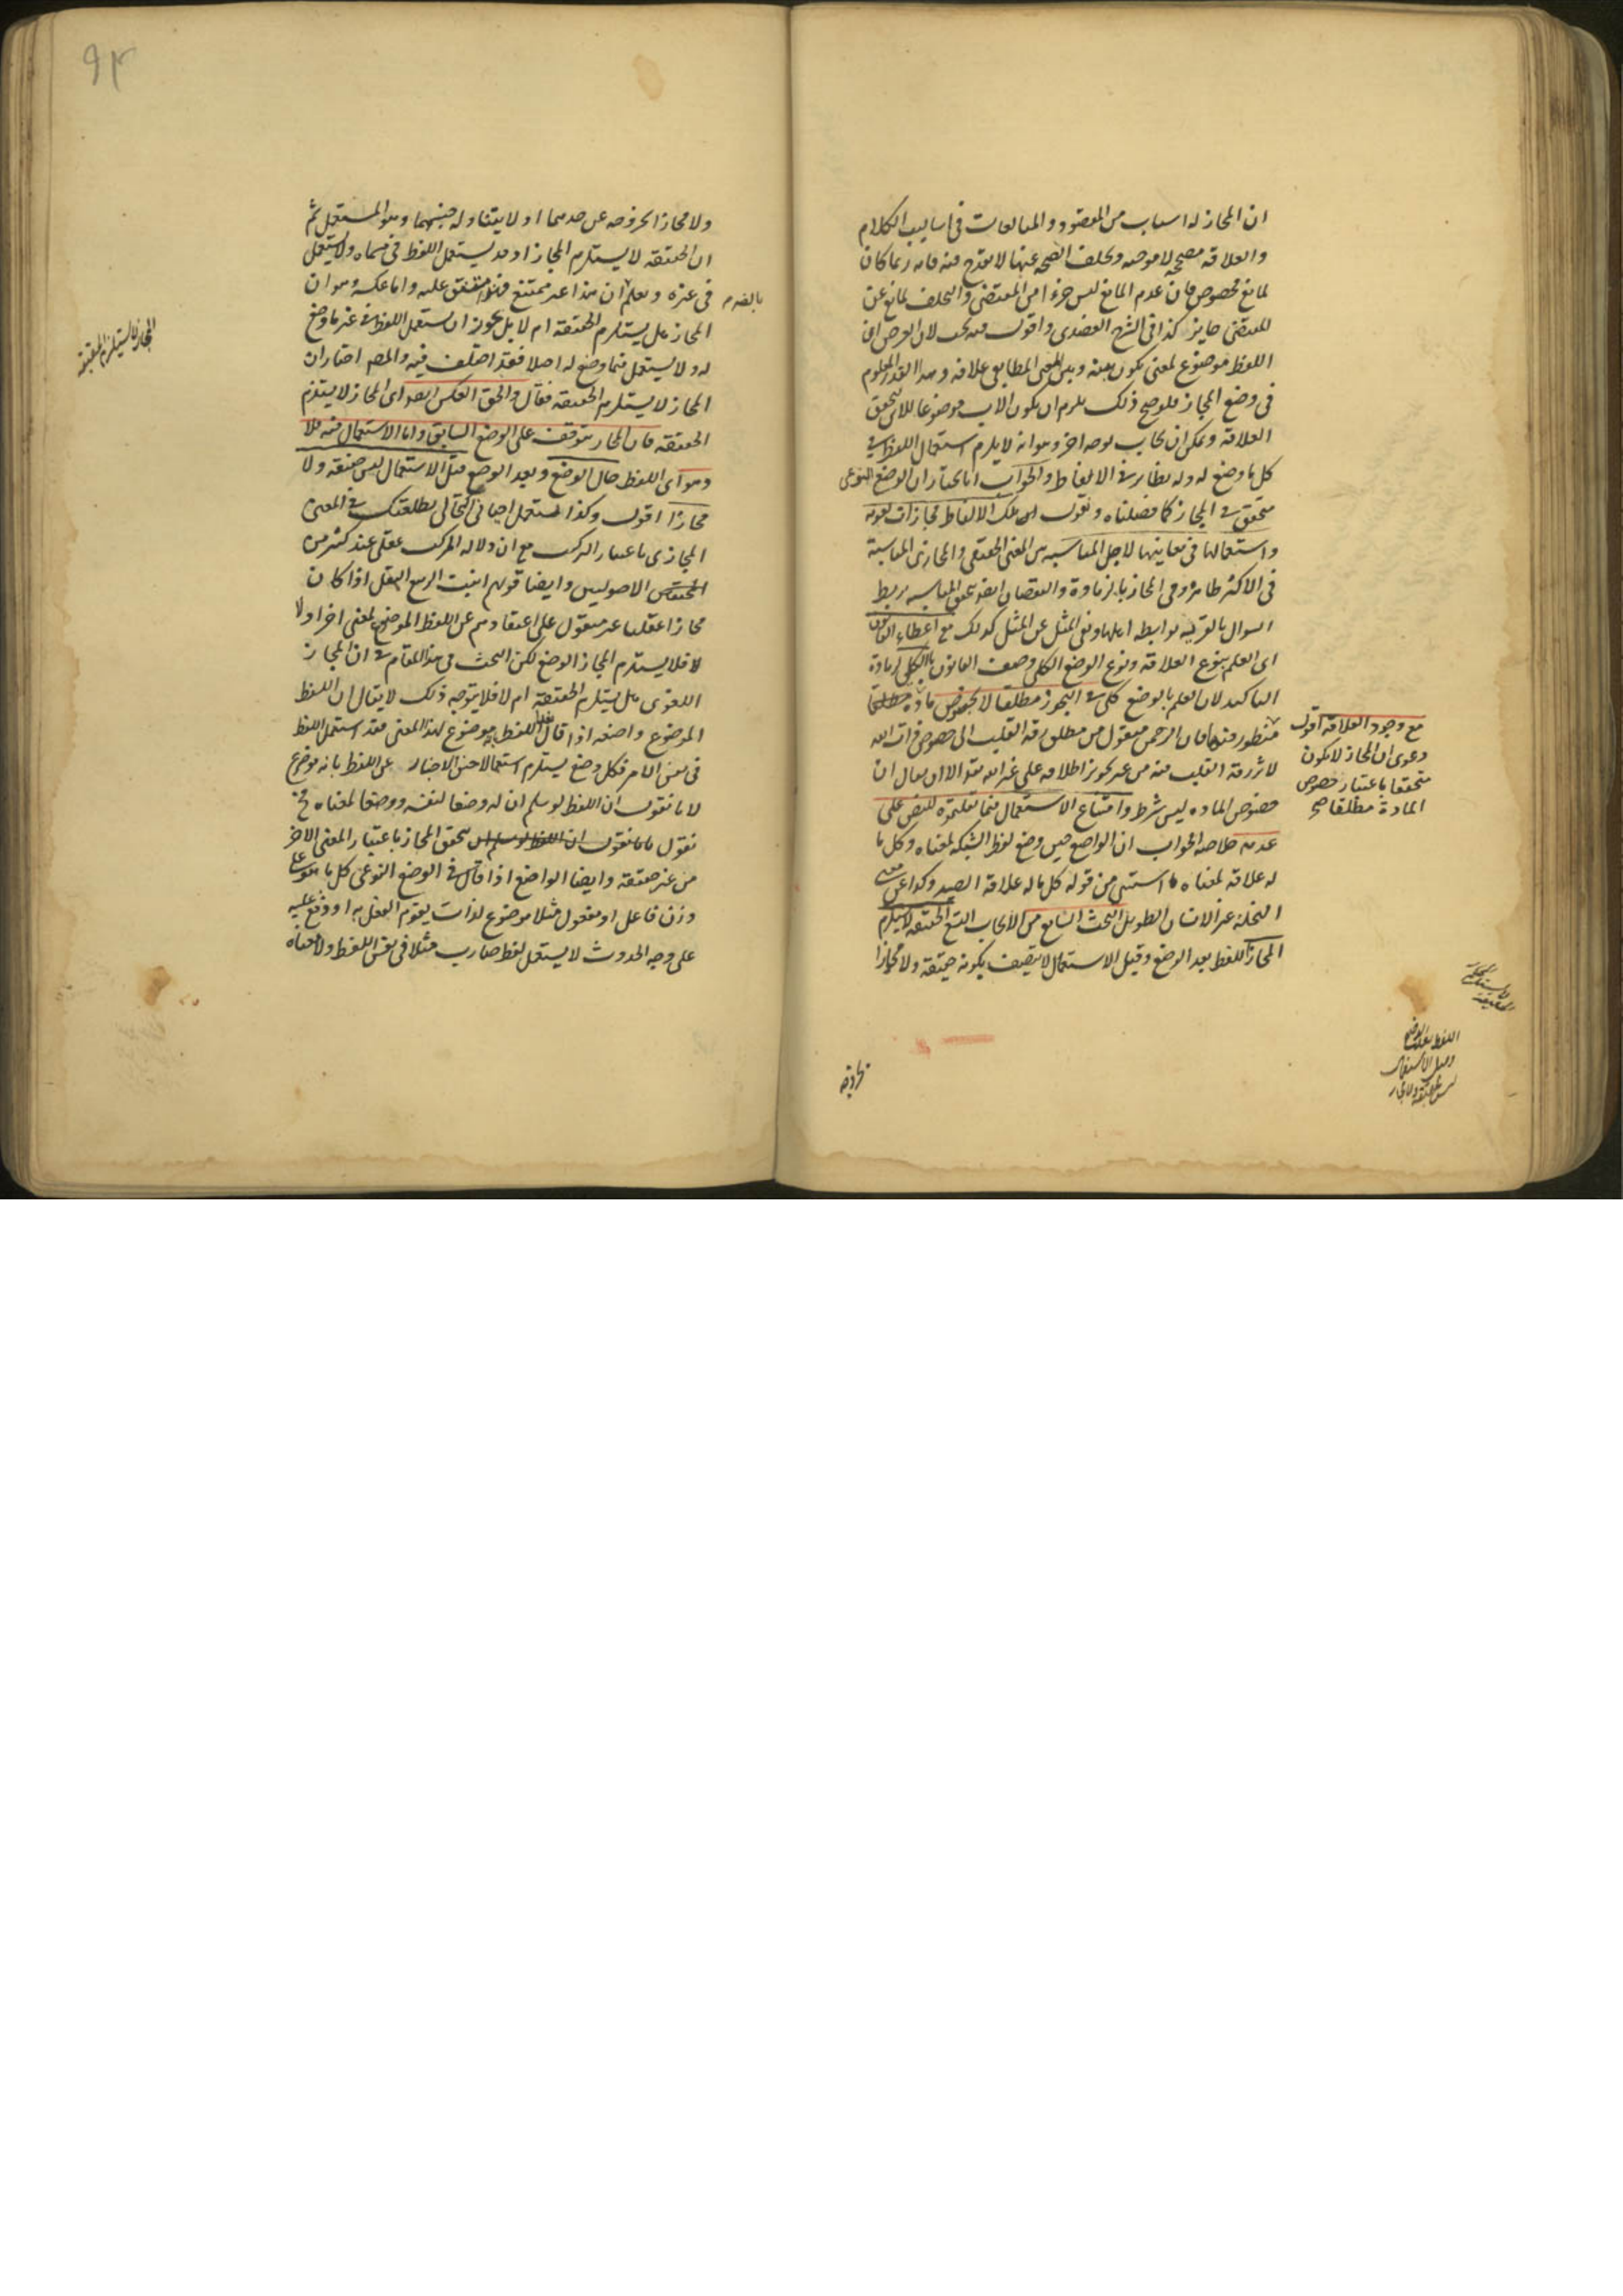 ان المجاز له اسباب من المقصود والمبالغات فى اساليب الكلام
والعلاقة مصححة لا موجبة وتخلف الصحة عنها لا يقدح فيه فانه ربما كان
لمانع مخصوص فان عدم المانع ليس جزءا من المقتضى والتخلف لمانع عن
المقتضى جايز كذا فى الشرح العضدى واقول فيه بحث لان الغرض ان
اللفظ موضوع لمعنى يكون بينه وبين المعنى المطابقى علاقة وهذا القدر المعلوم
فى وضع المجاز فلو صح ذلك يلزم ان يكون الاب موضوعا للابن لتحقق
العلاقة ويمكن ان يجاب بوجه اخر وهو انه لا يلزم استعمال اللفظ فى
كل ما وضع له وله نظاير فى الالفاظ والجواب انا نختار ان الوضع النوعى
متحقق فى المجاز كما فصلناه ونقول ان تلك الالفاظ مجازات لغوية
واستعمالها فى معانيها لاجل المناسبة بين المعنى الحقيقى والمجازى المناسبة
فى الاكثر ظاهر وفى المجاز بالزيادة والنقصان ايضا تحقق المناسبة بربط
السوال بالقرية بواسطة اهلها ونفى المثل عن المثل كذلك مع اعطاء القانون
اى العلم بنوع العلاقة ونوع الوضع الكلى وصف القانون بالكلى لزيادة
التاكيد لان العلم بالوضع كلى فى التجوز مطلقا لا بخصوص مادة
منظور فيه فان الرحمن منقول من مطلق رقة القلب الى خصوص ذات الله
لاثر رقة القلب فيه من غير تجويز اطلاقه على غير الله تعالى الا ان يقال ان
خصوص المادة ليس شرط وامتناع الاستعمال فيما نقلتموه للنص على
عدمه خلاصة الجواب ان الواضع حين وضع لفظ الشبكة لمعناه وكل ما
له علاقة لمعناه استثنى من قوله كل ما له علاقة الصيد وكذا عن معنى
النخلة غير الانسان الطويل البحث السابع من الابحاث التسع الحقيقة لا يستلزم
المجاز اللفظ بعد الوضع وقبل الاستعمال لا يتصف بكونه حقيقة ولا مجازا
مع وجود العلاقة اقول
دعوى ان المجاز لا يكون
متحققا باعتبار خصوص
المادة مطلقا صح
اللفظ بعد الوضع
وقبل الاستعمال
ليس بحقيقة ولا مجاز
ولا مجازا لخروجه عن حدهما او لا يتناوله جنسهما وهو المستعمل ثم
ان الحقيقة لا يستلزم المجاز اذ قد يستعمل اللفظ فى مسماه ولا يستعمل
فى غيره ويعلم ان هذا غير ممتنع فهو متفق عليه واما عكسه وهو ان
المجاز هل يستلزم الحقيقة ام لا بل يجوز ان يستعمل اللفظ فى غير ما وضع
له ولا يستعمل فيما وضع له اصلا فقد اختلف فيه والمصم اختار ان
المجاز لا يستلزم الحقيقة فقال والحق العكس ايضا اى المجاز لا يستلزم
الحقيقة فان المجاز يتوقف على الوضع السابق واما الاستعمال فيه فلا
وهو اى اللفظ حال الوضع وبعد الوضع قبل الاستعمال ليس حقيقة ولا
مجازا اقول وكذا استعمل احيانى اكتحالى بطلعتك فى المعنى
المجازى باعتبار التركيب مع ان دلالة المركب عقلى عند كثير من
المحققين الاصوليين وايضا قولهم انبت الربيع البقل اذا كان
مجازا عقليا غير منقول على اعتقادهم عن اللفظ الموضوع لمعنى اخر اولا
لا فلا يستلزم المجاز الوضع لكن البحث فى هذا المقام فى ان المجاز
اللغوى هل يستلزم الحقيقة ام لا فلا يتوجه ذلك لا يقال ان اللفظ
الموضوع واضعه اذا قال هذا اللفظ موضوع لهذا المعنى فقد استعمل اللفظ
فى نفس الامر فكل وضع يستلزم استعمالا حين الاخبار عن اللفظ بانه موضوع
لانا نقول ان اللفظ لو سلم ان له وضعا لنفسه ووضعا لمعناه فح
نقول تحقق المجاز باعتبار المعنى الاخر
من غير حقيقة وايضا الواضع اذا قال فى الوضع النوعى كل ما هو على
وزن فاعل او مفعول مثلا موضوع لذات يقوم الفعل به او وقع عليه
على وجه الحدوث لا يستعمل لفظ ضارب مثلا فى نفس اللفظ ولا معناه
المجاز لا يستلزم الحقيقة